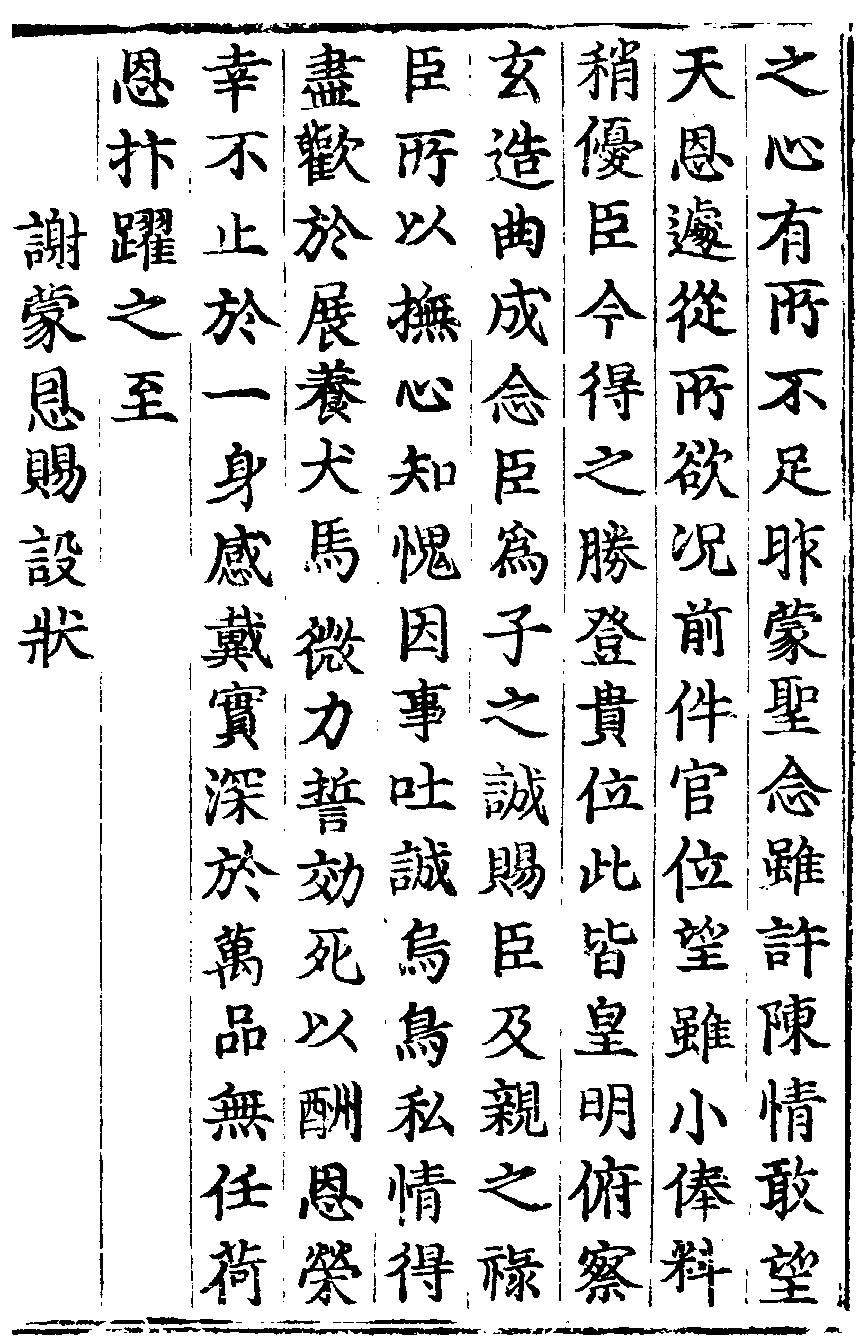 之心有所不足昨蒙聖念雖許陳情敢望
天恩遽從所欲况前件官位望雖小俸料
稍優臣今得之勝登貴位此皆皇明俯察
玄造曲成念臣為子之誠賜臣及親之祿
臣所以撫心知愧因事吐誠烏鳥私情得
盡歡於展養犬馬微力誓効死以酬恩榮
幸不止於一身感戴實深於萬品無任荷
恩抃躍之至
謝蒙恩賜設狀